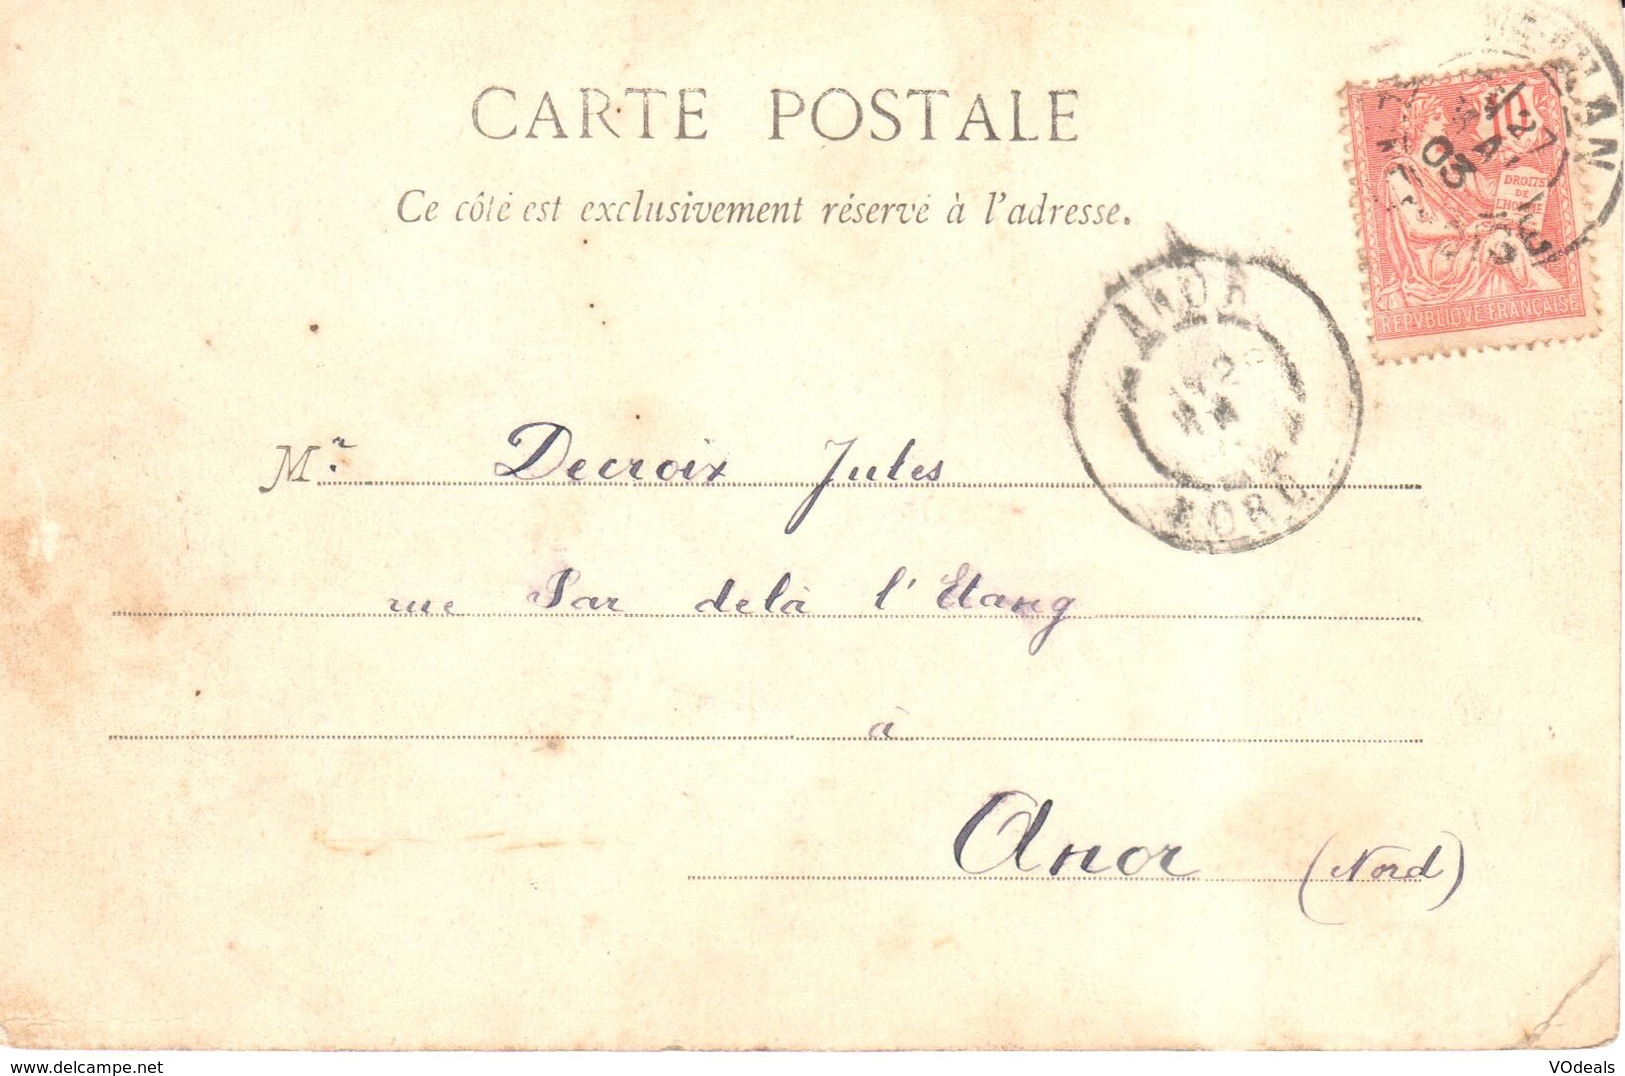 CARTE POSTALE
Ce côté est exclusivement réservé à l'adresse.
10
03
DROITS
DE
L'HOMME
REPVBLIQVE FRANÇAISE
ANOR
NORD
Mr. Decroix Jules
rue Par delà l'Etang
à
Anor (Nord)
www.delcampe.net
VOdeals